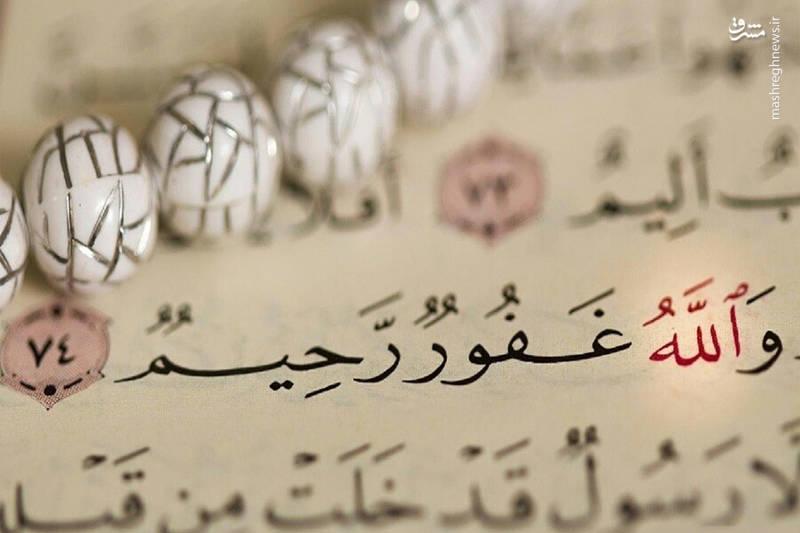 مشرق
mashreghnews.ir
أَلِيمٌ ٧٣ أَفَلَا
وَٱللَّهُ غَفُورٌ رَّحِيمٌ ٧٤
لَّا رَسُولٌ قَدْ خَلَتْ مِن قَبْلِ